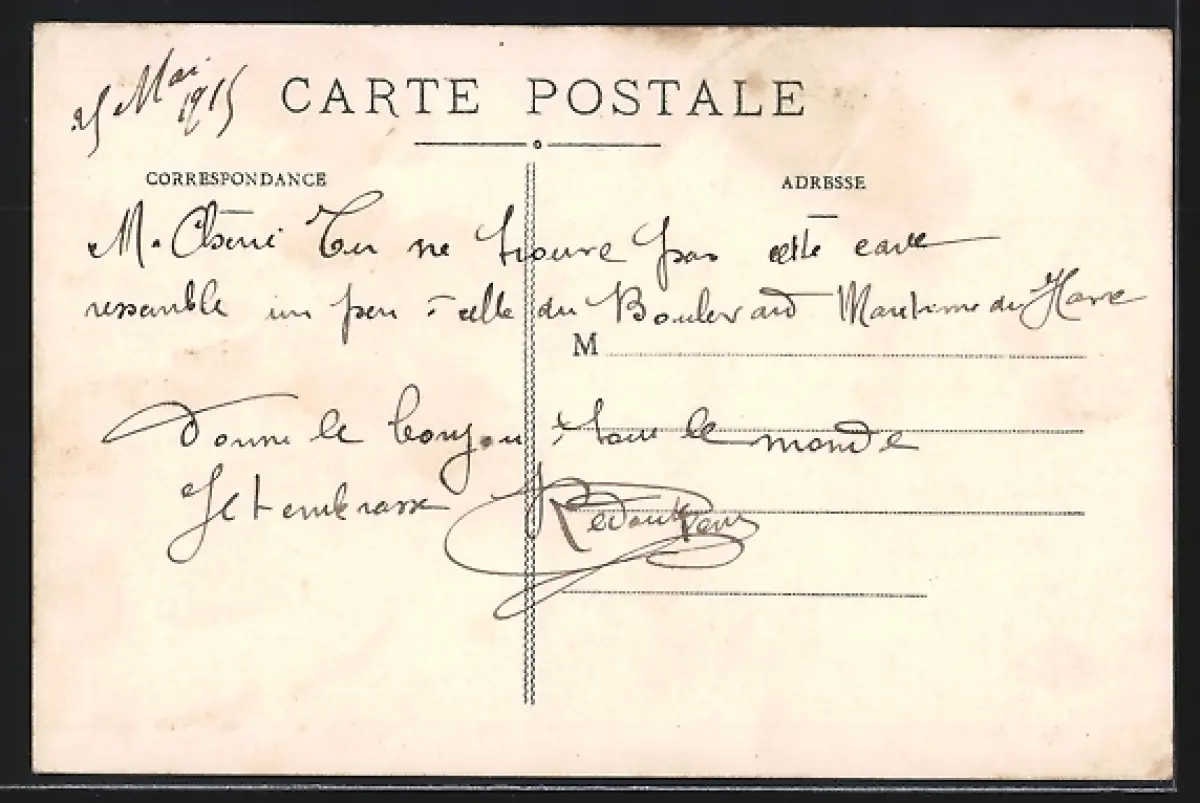 25 Mai 1915
CARTE POSTALE
CORRESPONDANCE
ADRESSE
M. Chérie Tu ne trouve pas cette carte
ressemble un peu à celle du Boulevard Maritime du Havre
M
Donne le bonjour à tout le monde
Je t'embrasse